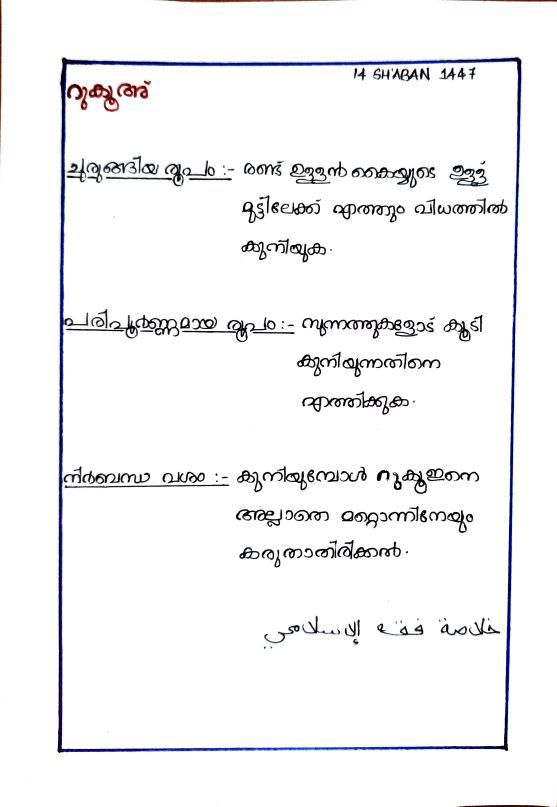 14 SH'ABAN 1447
റുകൂഅ്
ചുരുങ്ങിയ രൂപം :- രണ്ട് ഉള്ളൻ കൈയ്യുടെ ഉള്ള്
മുട്ടിലേക്ക് എത്തും വിധത്തിൽ
കുനിയുക.
പരിപൂർണ്ണമായ രൂപം :- സുന്നത്തുകളോട് കൂടി
കുനിയുന്നതിനെ
എത്തിക്കുക.
നിർബന്ധ വശം :- കുനിയുമ്പോൾ റുകൂഇനെ
അല്ലാതെ മറ്റൊന്നിനേയും
കരുതാതിരിക്കൽ.
خلاصة فقه الإسلامي